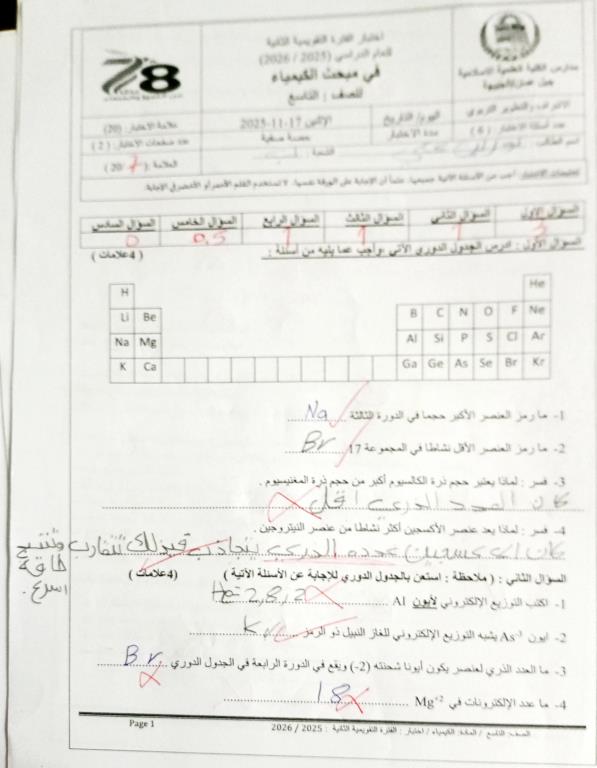 اختبار الفترة التقويمية الثانية
للعام الدراسي (2025 / 2026)
في مبحث الكيمياء
للصف : التاسع
مدارس الكلية العلمية الاسلامية
الاشراف والتطوير التربوي
عدد أسئلة الاختبار : ( 6 )
اليوم/ التاريخ
الإثنين 17-11-2025
مدة الاختبار
حصة صفية
علامة الاختبار: (20)
عدد صفحات الاختبار: ( 2 )
العلامة :( 7 /20)
اسم الطالب
الشعبة :
السؤال الأول السؤال الثاني السؤال الثالث السؤال الرابع السؤال الخامس السؤال السادس
3 1 1 1 0.5 0
السؤال الأول : ادرس الجدول الدوري الآتي ،وأجب عما يليه من أسئلة : ( 4علامات )
H He
Li Be B C N O F Ne
Na Mg Al Si P S Cl Ar
K Ca Ga Ge As Se Br Kr
1- ما رمز العنصر الأكبر حجما في الدورة الثالثة Na
2- ما رمز العنصر الأقل نشاطا في المجموعة 17 Br
3- فسر : لماذا يعتبر حجم ذرة الكالسيوم أكبر من حجم ذرة المغنيسيوم .
كان العدد الذري اقل
4- فسر : لماذا يعد عنصر الأكسجين أكثر نشاطا من عنصر النيتروجين .
عدده الذري يتجاذب تتقارب وتنتج
طاقة
اسرع .
السؤال الثاني : ( ملاحظة : استعن بالجدول الدوري للإجابة عن الأسئلة الآتية ) (4علامات )
1- اكتب التوزيع الإلكتروني لأيون Al He=2,8,2
2- ايون As-3 يشبه التوزيع الإلكتروني للغاز النبيل ذو الرمز Kr
3- ما العدد الذري لعنصر يكون أيونا شحنته (2-) ويقع في الدورة الرابعة في الجدول الدوري Br
4- ما عدد الإلكترونات في Mg+2 18
الصف: التاسع / المادة: الكيمياء / اختبار : الفترة التقويمية الثانية : 2025 / 2026
Page 1